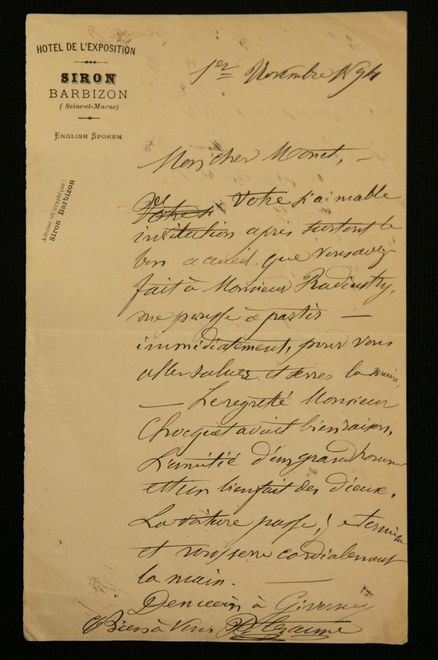 HOTEL DE L'EXPOSITION
SIRON
BARBIZON
(Seine-et-Marne)
ENGLISH SPOKEN
Adresse télégraphique:
Siron Barbizon
1er Novembre 1894
Mon cher Monet,
votre si aimable
invitation après surtout le
bon accueil que vous avez
fait à Monsieur
me pousse à partir
immédiatement, pour vous
aller saluer et la main,
Le regretté Monsieur
Chocquet avait bien raison,
L'amitié d'un grand homme
est un bienfait des dieux.
La voiture passe! je termine
et vous serre cordialement
la main.
Demain à Giverny
Bien à Vous P. Cezanne